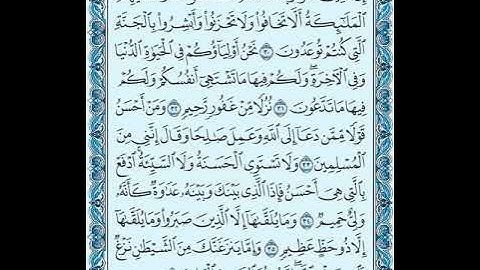 الْمَلَٰٓئِكَةُ أَلَّا تَخَافُوا۟ وَلَا تَحْزَنُوا۟ وَأَبْشِرُوا۟ بِالْجَنَّةِ
الَّتِى كُنتُمْ تُوعَدُونَ ٣٠ نَحْنُ أَوْلِيَآؤُكُمْ فِى الْحَيَوٰةِ الدُّنْيَا
وَفِى الْءَاخِرَةِ ۖ وَلَكُمْ فِيهَا مَا تَشْتَهِىٓ أَنفُسُكُمْ وَلَكُمْ
فِيهَا مَا تَدَّعُونَ ٣١ نُزُلًا مِّنْ غَفُورٍ رَّحِيمٍ ٣٢ وَمَنْ أَحْسَنُ
قَوْلًا مِّمَّن دَعَآ إِلَى اللَّهِ وَعَمِلَ صَٰلِحًا وَقَالَ إِنَّنِى مِنَ
الْمُسْلِمِينَ ٣٣ وَلَا تَسْتَوِى الْحَسَنَةُ وَلَا السَّيِّئَةُ ۚ ادْفَعْ
بِالَّتِى هِىَ أَحْسَنُ فَإِذَا الَّذِى بَيْنَكَ وَبَيْنَهُۥ عَدَٰوَةٌ كَأَنَّهُۥ
وَلِىٌّ حَمِيمٌ ٣٤ وَمَا يُلَقَّىٰهَآ إِلَّا الَّذِينَ صَبَرُوا۟ وَمَا يُلَقَّىٰهَآ
إِلَّا ذُو حَظٍّ عَظِيمٍ ٣٥ وَإِمَّا يَنزَغَنَّكَ مِنَ الشَّيْطَٰنِ نَزْغٌ